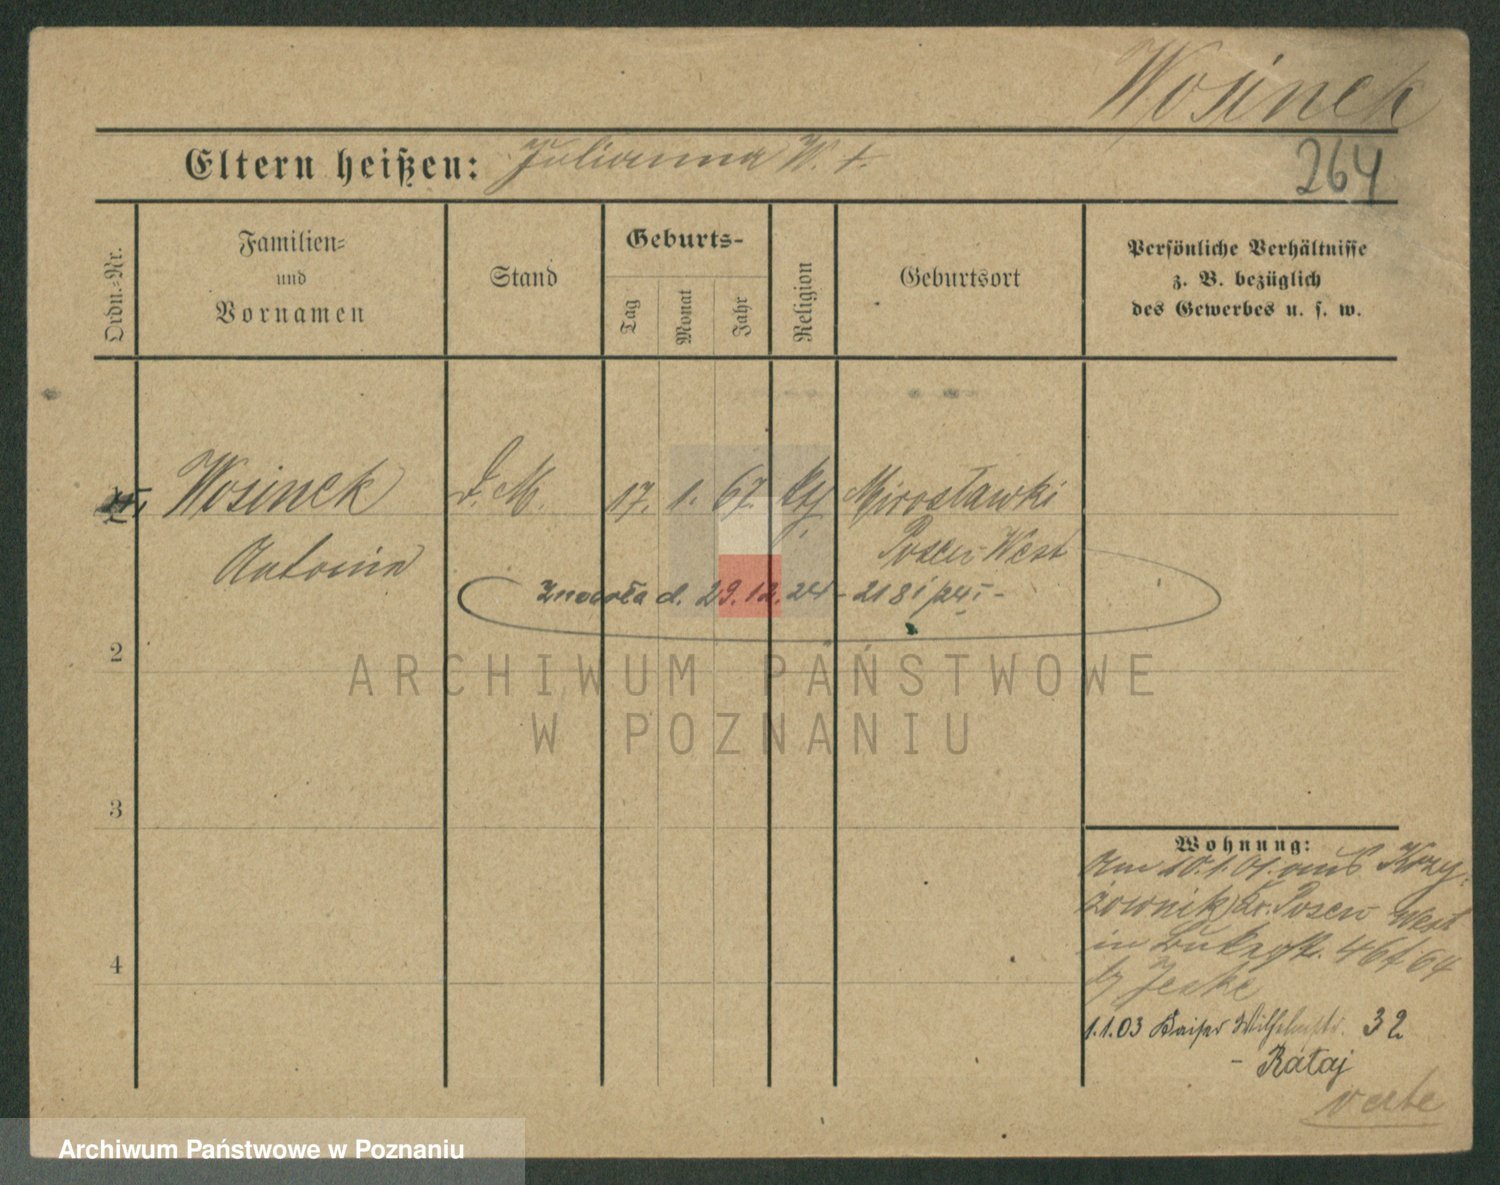 Wosinek
Eltern heißen: Julianna W. †.
264
Ordn.-Nr.
Familien-
und
Vornamen
Stand
Geburts-
Tag
Monat
Jahr
Religion
Geburtsort
Persönliche Verhältnisse
z. B. bezüglich
des Gewerbes u. s. w.
Wosinek
Antonin
D. M.
17. 1. 67.
Mirosławki
Posen West
d. 29.12.24 -
2
3
4
Wohnung:
Am 10.1.01. aus Krzy-
żownik Kr. Posen West
in 46/64
b/ Jeske
1.1.03 Kaiser Wilhelmstr. 32
- Rataj
verte
ARCHIWUM PAŃSTWOWE
W POZNANIU
Archiwum Państwowe w Poznaniu